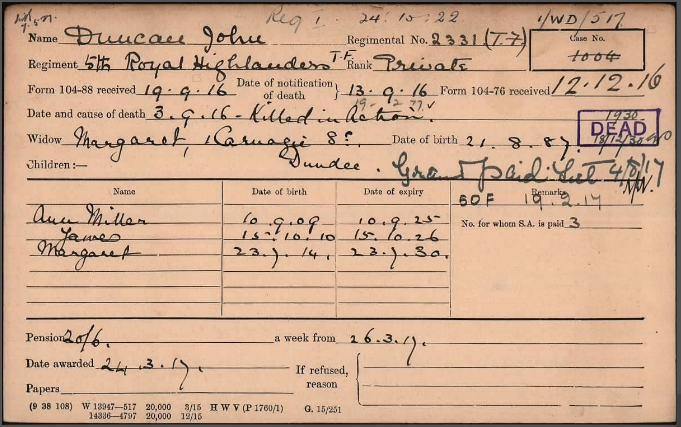 Reg I. 24.10.22 1/WD/517
Name Duncan John Regimental No. 2331 (T.F) Case No. 1004
Regiment 5th Royal Highlanders T.F. Rank Private
Form 104-88 received 19.9.16 Date of notification of death } 13.9.16 Form 104-76 received 12.12.16
Date and cause of death 3.9.16 - Killed in Action.
1930
DEAD
18/12/30
Widow Margaret, 1 Carnagie St. Date of birth 21.8.87.
Dundee.
Children:—
Grant paid 4/8/17
Name Date of birth Date of expiry Remarks
60F 19.2.17
Ann Miller 10.9.09 10.9.25 No. for whom S.A. is paid 3
James 15.10.10 15.10.26
Margaret 23.7.14. 23.7.30.
Pension 20/6. a week from 26.3.17.
Date awarded 24.3.17. If refused, reason
Papers
(9 38 108) W 13947—517 20,000 3/15 H W V (P 1760/1) G. 15/251
14336—4797 20,000 12/15